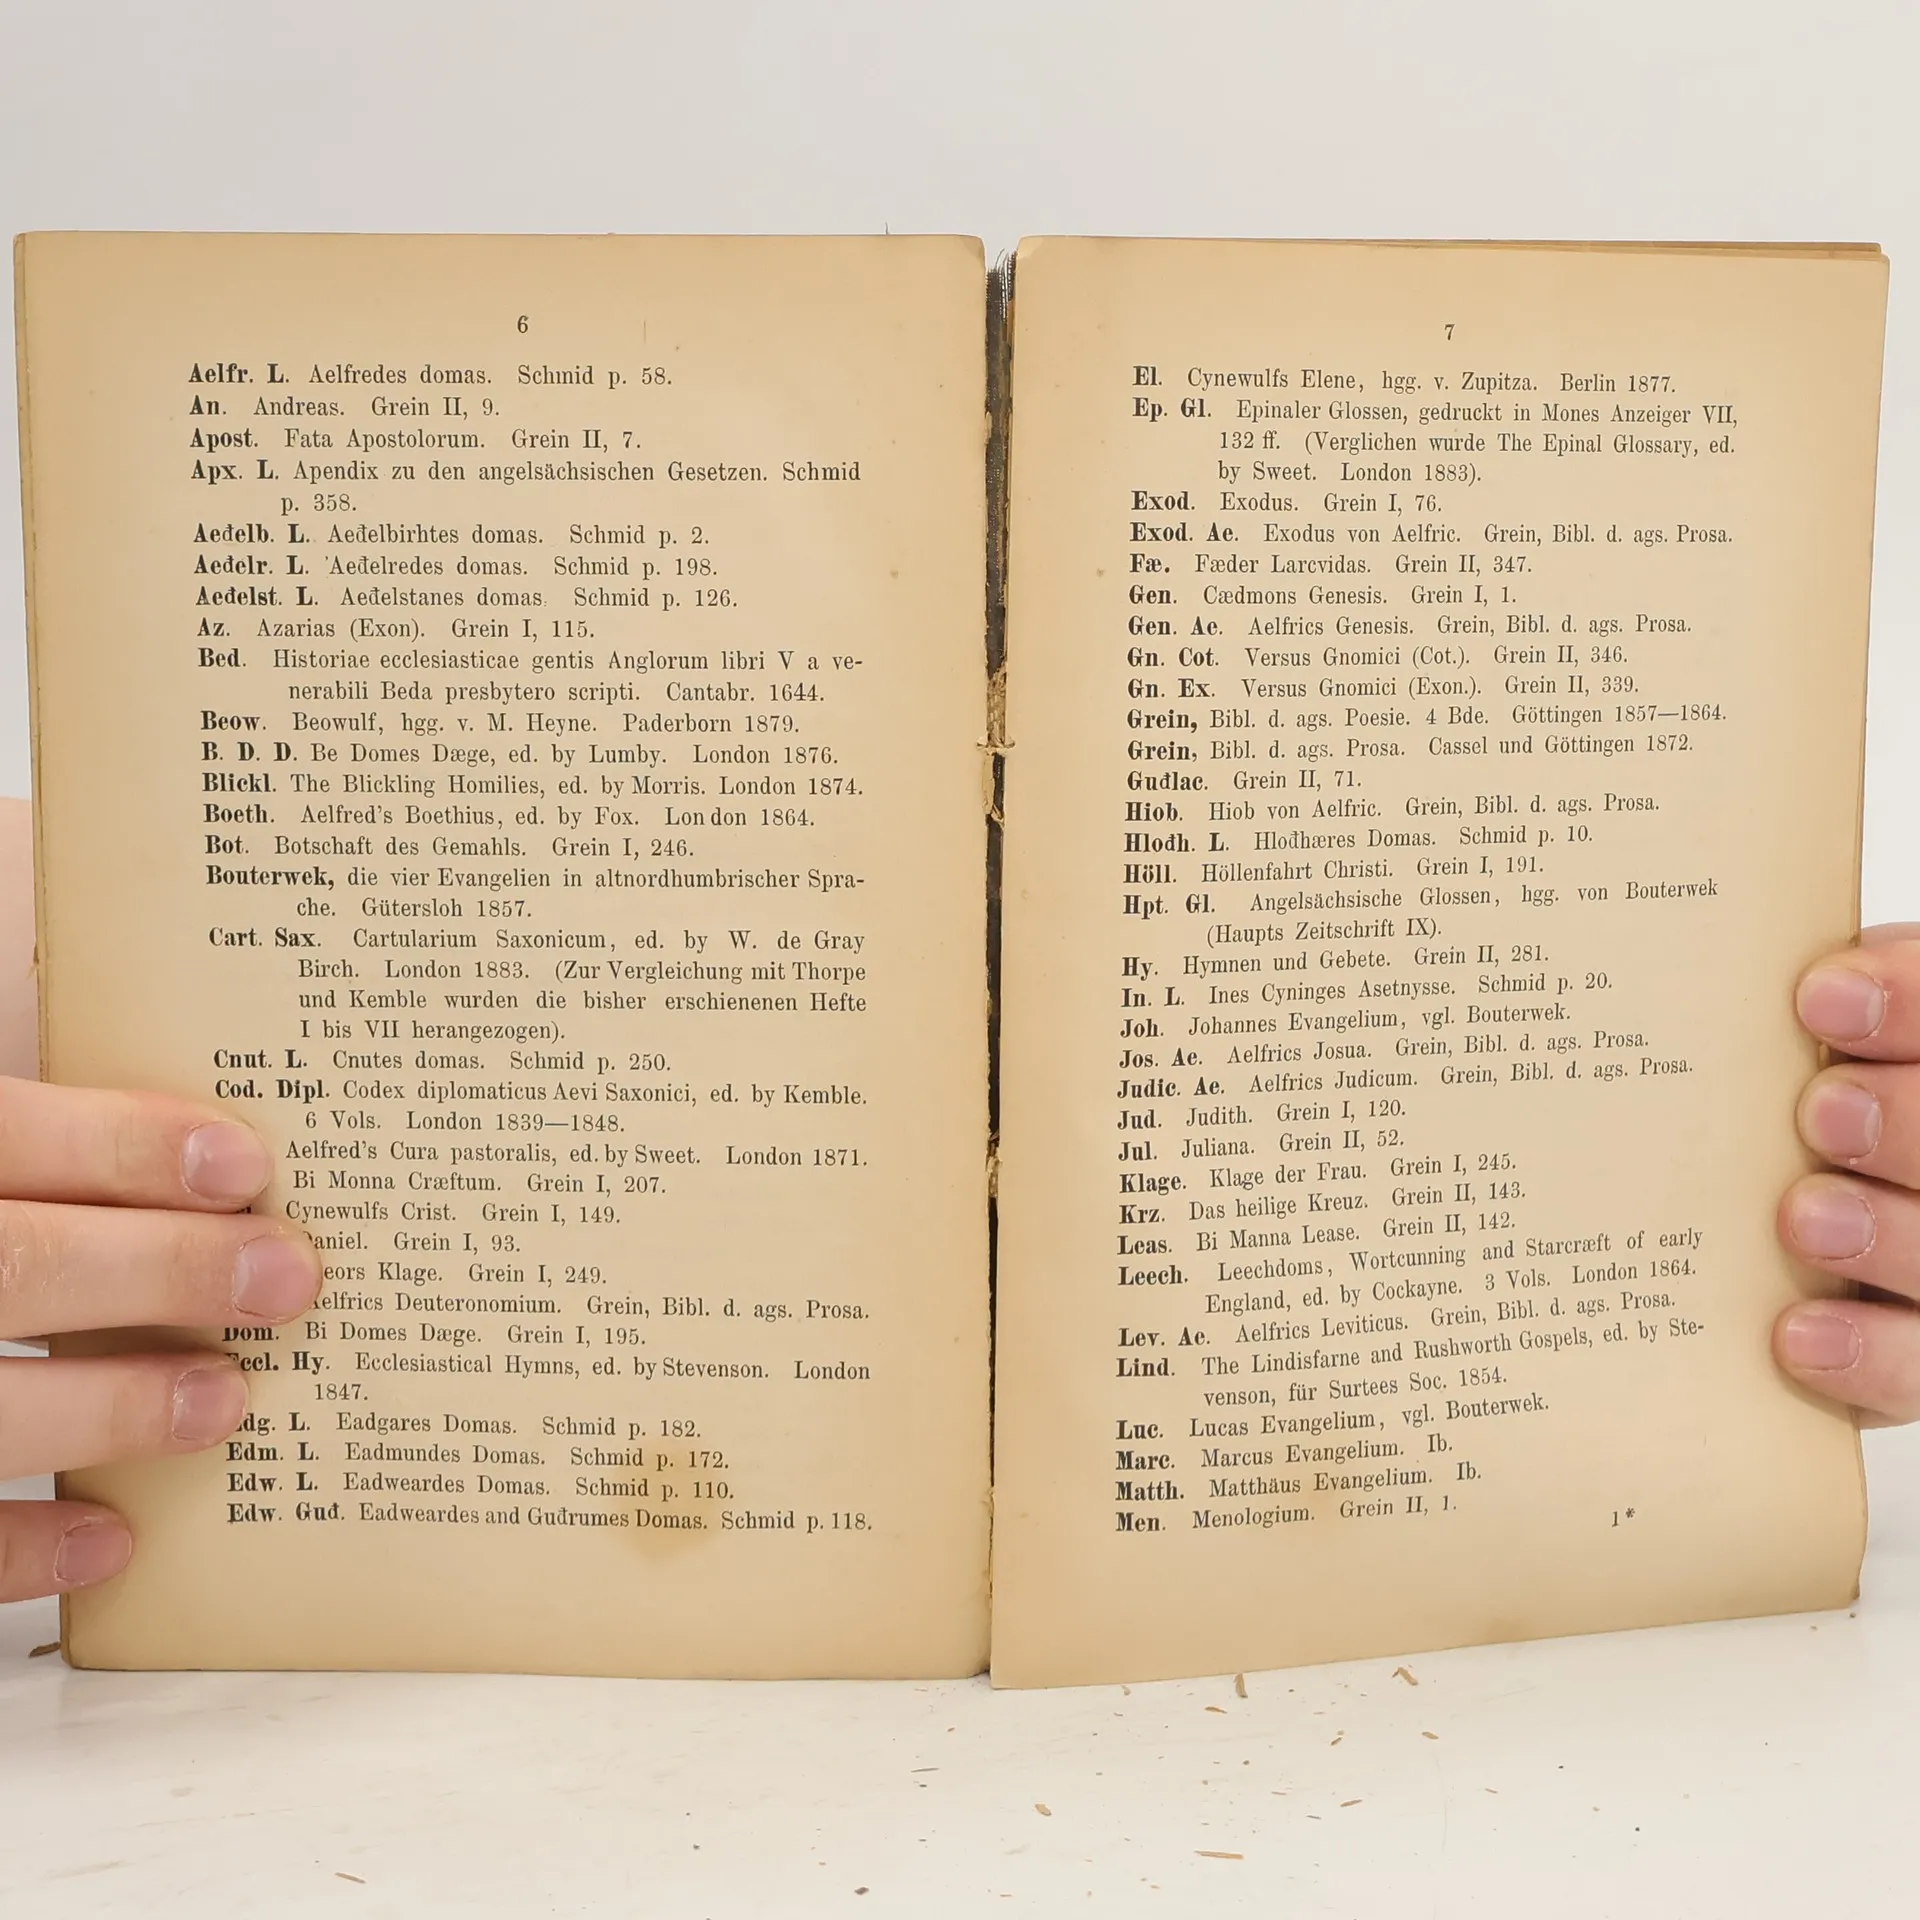 6
Aelfr. L. Aelfredes domas. Schmid p. 58.
An. Andreas. Grein II, 9.
Apost. Fata Apostolorum. Grein II, 7.
Apx. L. Apendix zu den angelsächsischen Gesetzen. Schmid
p. 358.
Aeđelb. L. Aeđelbirhtes domas. Schmid p. 2.
Aeđelr. L. Aeđelredes domas. Schmid p. 198.
Aeđelst. L. Aeđelstanes domas. Schmid p. 126.
Az. Azarias (Exon). Grein I, 115.
Bed. Historiae ecclesiasticae gentis Anglorum libri V a ve-
nerabili Beda presbytero scripti. Cantabr. 1644.
Beow. Beowulf, hgg. v. M. Heyne. Paderborn 1879.
B. D. D. Be Domes Dæge, ed. by Lumby. London 1876.
Blickl. The Blickling Homilies, ed. by Morris. London 1874.
Boeth. Aelfred's Boethius, ed. by Fox. London 1864.
Bot. Botschaft des Gemahls. Grein I, 246.
Bouterwek, die vier Evangelien in altnordhumbrischer Spra-
che. Gütersloh 1857.
Cart. Sax. Cartularium Saxonicum, ed. by W. de Gray
Birch. London 1883. (Zur Vergleichung mit Thorpe
und Kemble wurden die bisher erschienenen Hefte
I bis VII herangezogen).
Cnut. L. Cnutes domas. Schmid p. 250.
Cod. Dipl. Codex diplomaticus Aevi Saxonici, ed. by Kemble.
6 Vols. London 1839—1848.
Aelfred's Cura pastoralis, ed. by Sweet. London 1871.
Bi Monna Cræftum. Grein I, 207.
Cynewulfs Crist. Grein I, 149.
aniel. Grein I, 93.
eors Klage. Grein I, 249.
Aelfrics Deuteronomium. Grein, Bibl. d. ags. Prosa.
Dom. Bi Domes Dæge. Grein I, 195.
Eccl. Hy. Ecclesiastical Hymns, ed. by Stevenson. London
1847.
Edg. L. Eadgares Domas. Schmid p. 182.
Edm. L. Eadmundes Domas. Schmid p. 172.
Edw. L. Eadweardes Domas. Schmid p. 110.
Edw. Guđ. Eadweardes and Guđrumes Domas. Schmid p. 118.
7
El. Cynewulfs Elene, hgg. v. Zupitza. Berlin 1877.
Ep. Gl. Epinaler Glossen, gedruckt in Mones Anzeiger VII,
132 ff. (Verglichen wurde The Epinal Glossary, ed.
by Sweet. London 1883).
Exod. Exodus. Grein I, 76.
Exod. Ae. Exodus von Aelfric. Grein, Bibl. d. ags. Prosa.
Fæ. Fæder Larcvidas. Grein II, 347.
Gen. Cædmons Genesis. Grein I, 1.
Gen. Ae. Aelfrics Genesis. Grein, Bibl. d. ags. Prosa.
Gn. Cot. Versus Gnomici (Cot.). Grein II, 346.
Gn. Ex. Versus Gnomici (Exon.). Grein II, 339.
Grein, Bibl. d. ags. Poesie. 4 Bde. Göttingen 1857—1864.
Grein, Bibl. d. ags. Prosa. Cassel und Göttingen 1872.
Guđlac. Grein II, 71.
Hiob. Hiob von Aelfric. Grein, Bibl. d. ags. Prosa.
Hlođh. L. Hlođhæres Domas. Schmid p. 10.
Höll. Höllenfahrt Christi. Grein I, 191.
Hpt. Gl. Angelsächsische Glossen, hgg. von Bouterwek
(Haupts Zeitschrift IX).
Hy. Hymnen und Gebete. Grein II, 281.
In. L. Ines Cyninges Asetnysse. Schmid p. 20.
Joh. Johannes Evangelium, vgl. Bouterwek.
Jos. Ae. Aelfrics Josua. Grein, Bibl. d. ags. Prosa.
Judic. Ae. Aelfrics Judicum. Grein, Bibl. d. ags. Prosa.
Jud. Judith. Grein I, 120.
Jul. Juliana. Grein II, 52.
Klage. Klage der Frau. Grein I, 245.
Krz. Das heilige Kreuz. Grein II, 143.
Leas. Bi Manna Lease. Grein II, 142.
Leech. Leechdoms, Wortcunning and Starcræft of early
England, ed. by Cockayne. 3 Vols. London 1864.
Lev. Ae. Aelfrics Leviticus. Grein, Bibl. d. ags. Prosa.
Lind. The Lindisfarne and Rushworth Gospels, ed. by Ste-
venson, für Surtees Soc. 1854.
Luc. Lucas Evangelium, vgl. Bouterwek.
Marc. Marcus Evangelium. Ib.
Matth. Matthäus Evangelium. Ib.
Men. Menologium. Grein II, 1.
1*